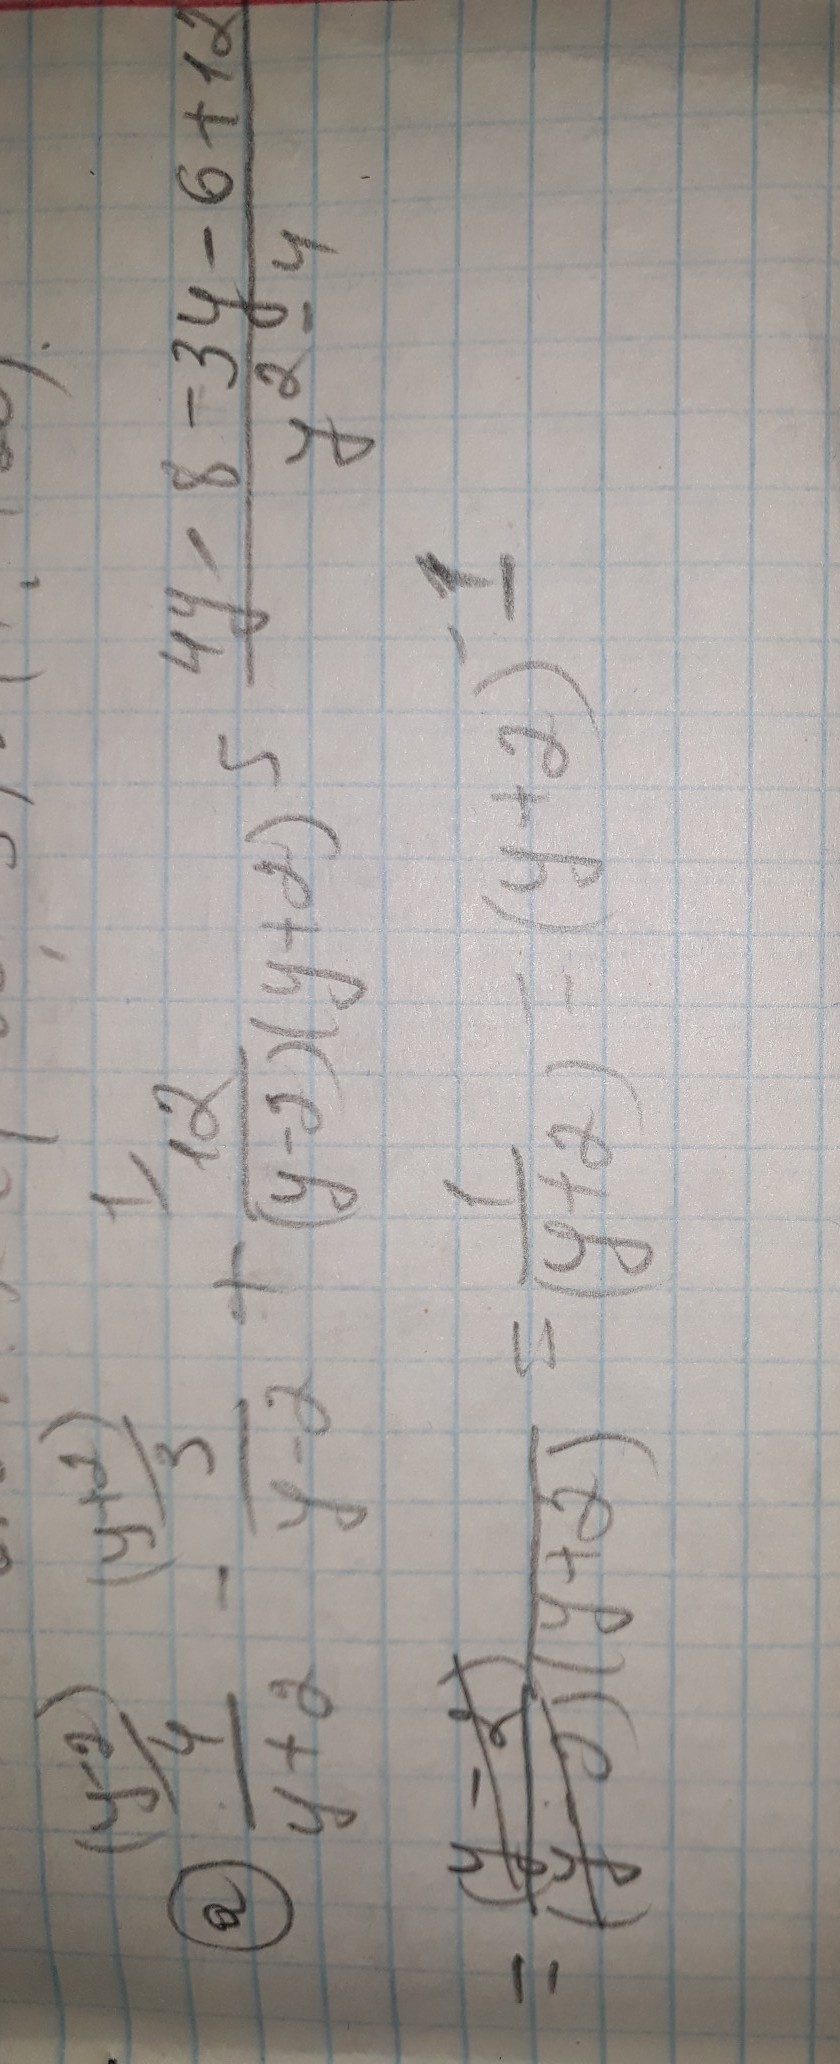 (y-2) (y+2) 1/
② 4/(y+2) - 3/(y-2) + 12/((y-2)(y+2)) = (4y - 8 - 3y - 6 + 12)/(y² - 4)
= (y - 2)/((y - 2)(y+2)) = 1/(y+2) - (y+2)⁻¹